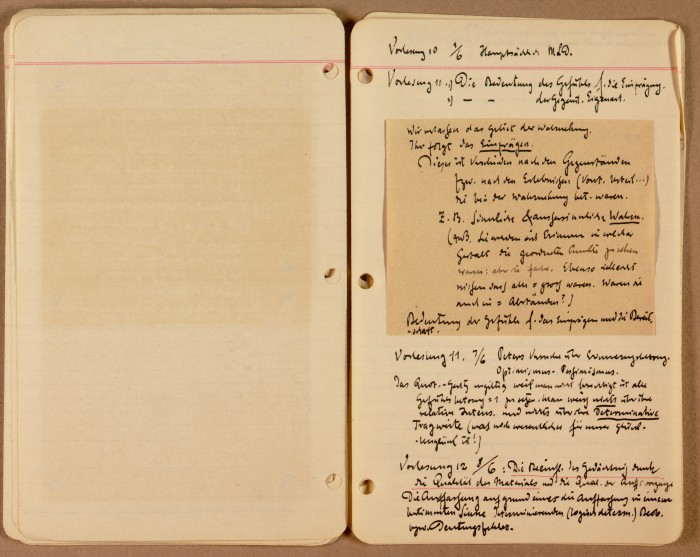 Vorlesung 10 7/6 Hauptsächlich M&D.
Vorlesung 11. 1) Die Bedeutung des Gefühls f. die Einprägung.
2) — — der Gegenst. Eigenart.
Wir verlassen das Gebiet der Wahrnehmung.
Ihr folgt das Einprägen.
Dieses ist verschieden nach den Gegenständen
bzw. nach den Erlebnissen (Vorst. Urteil...)
die bei der Wahrnehmung bet. waren.
Z. B. Sinnliche & aussersinnliche
die geordneten Punkte gesehen
waren: aber die Farbe. Ebenso vielleicht
wissen dass alle = gross waren. Waren sie
auch in = Abständen?)
Bedeutung der Gefühle f. das Einprägen und die Bereit-
schaft.
Vorlesung 11. 7/6 Peters Versuche über Erinnerungsbetonung.
Optimismus - Pessimismus.
Das Quot. - Gesetz ungültig weil man nicht berechtigt ist alle
Gefühlsbetong = 1 zu setzen. Man weiss nichts über ihre
relative Intens. und nichts über die Determinative
Tragweite (was noch wesentlicher für unser Glück -
Unglück ist!)
Vorlesung 12 8/6: Die Beeinfl. des Gedächtnis durch
die Qualität des Materials und die Qual. der Auff. vorgänge
Die Auffassung auf grund eines die Auffassung in einem
bestimmten Sinne Determinierenden (logisch determ.) Beob.
bzw. Deutungsfehler.